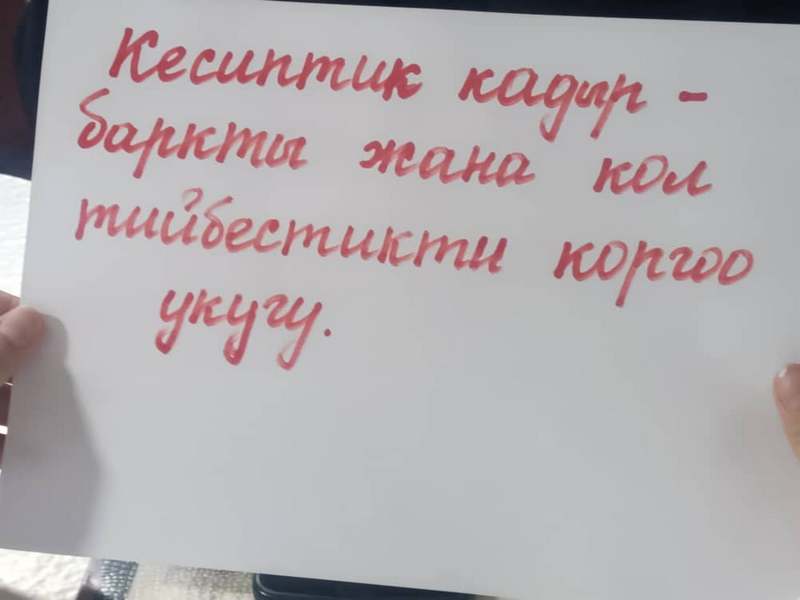 Кесиптик кадыр -
баркты жана кол
тийбестикти коргоо
укугу.